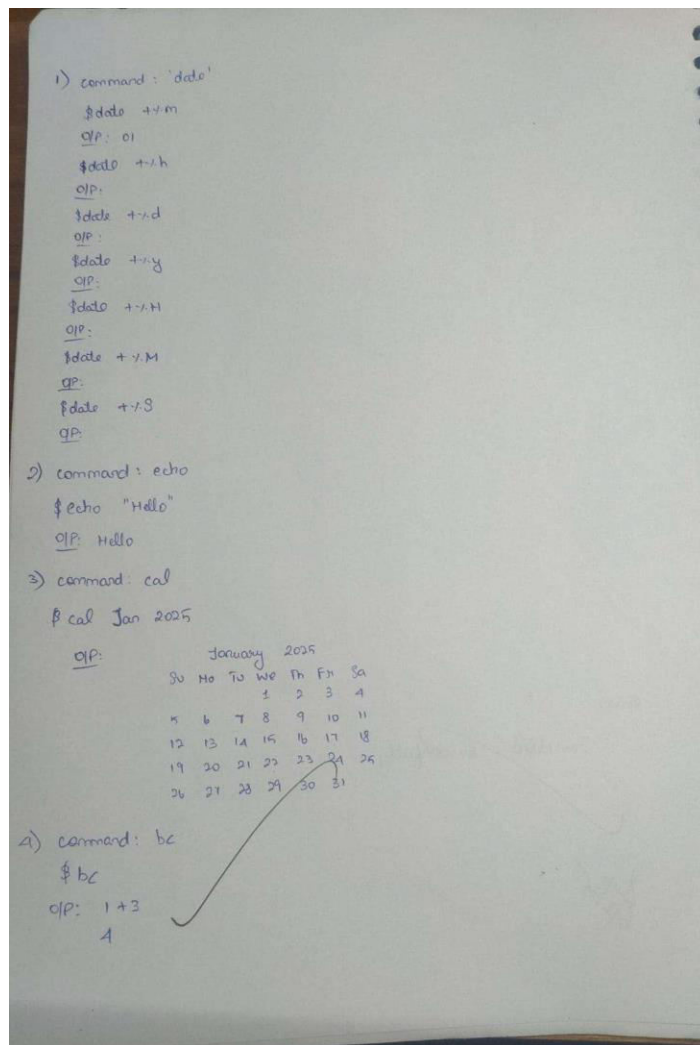 1) command : 'date'
$date +%m
O/P: 01
$date +%h
O/P:
$date +%d
O/P:
$date +%y
O/P:
$date +%H
O/P:
$date +%M
O/P:
$date +%S
O/P:
2) command : echo
$echo "Hello"
O/P: Hello
3) command: cal
$ cal Jan 2025
O/P: January 2025
Su Mo Tu We Th Fri Sa
1 2 3 4
5 6 7 8 9 10 11
12 13 14 15 16 17 18
19 20 21 22 23 24 25
26 27 28 29 30 31
4) command: bc
$ bc
O/P: 1+3
4